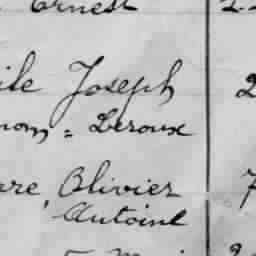 Ernest 2
ile Joseph 2
nom = Leroux
re, Olivier 7
Antoine